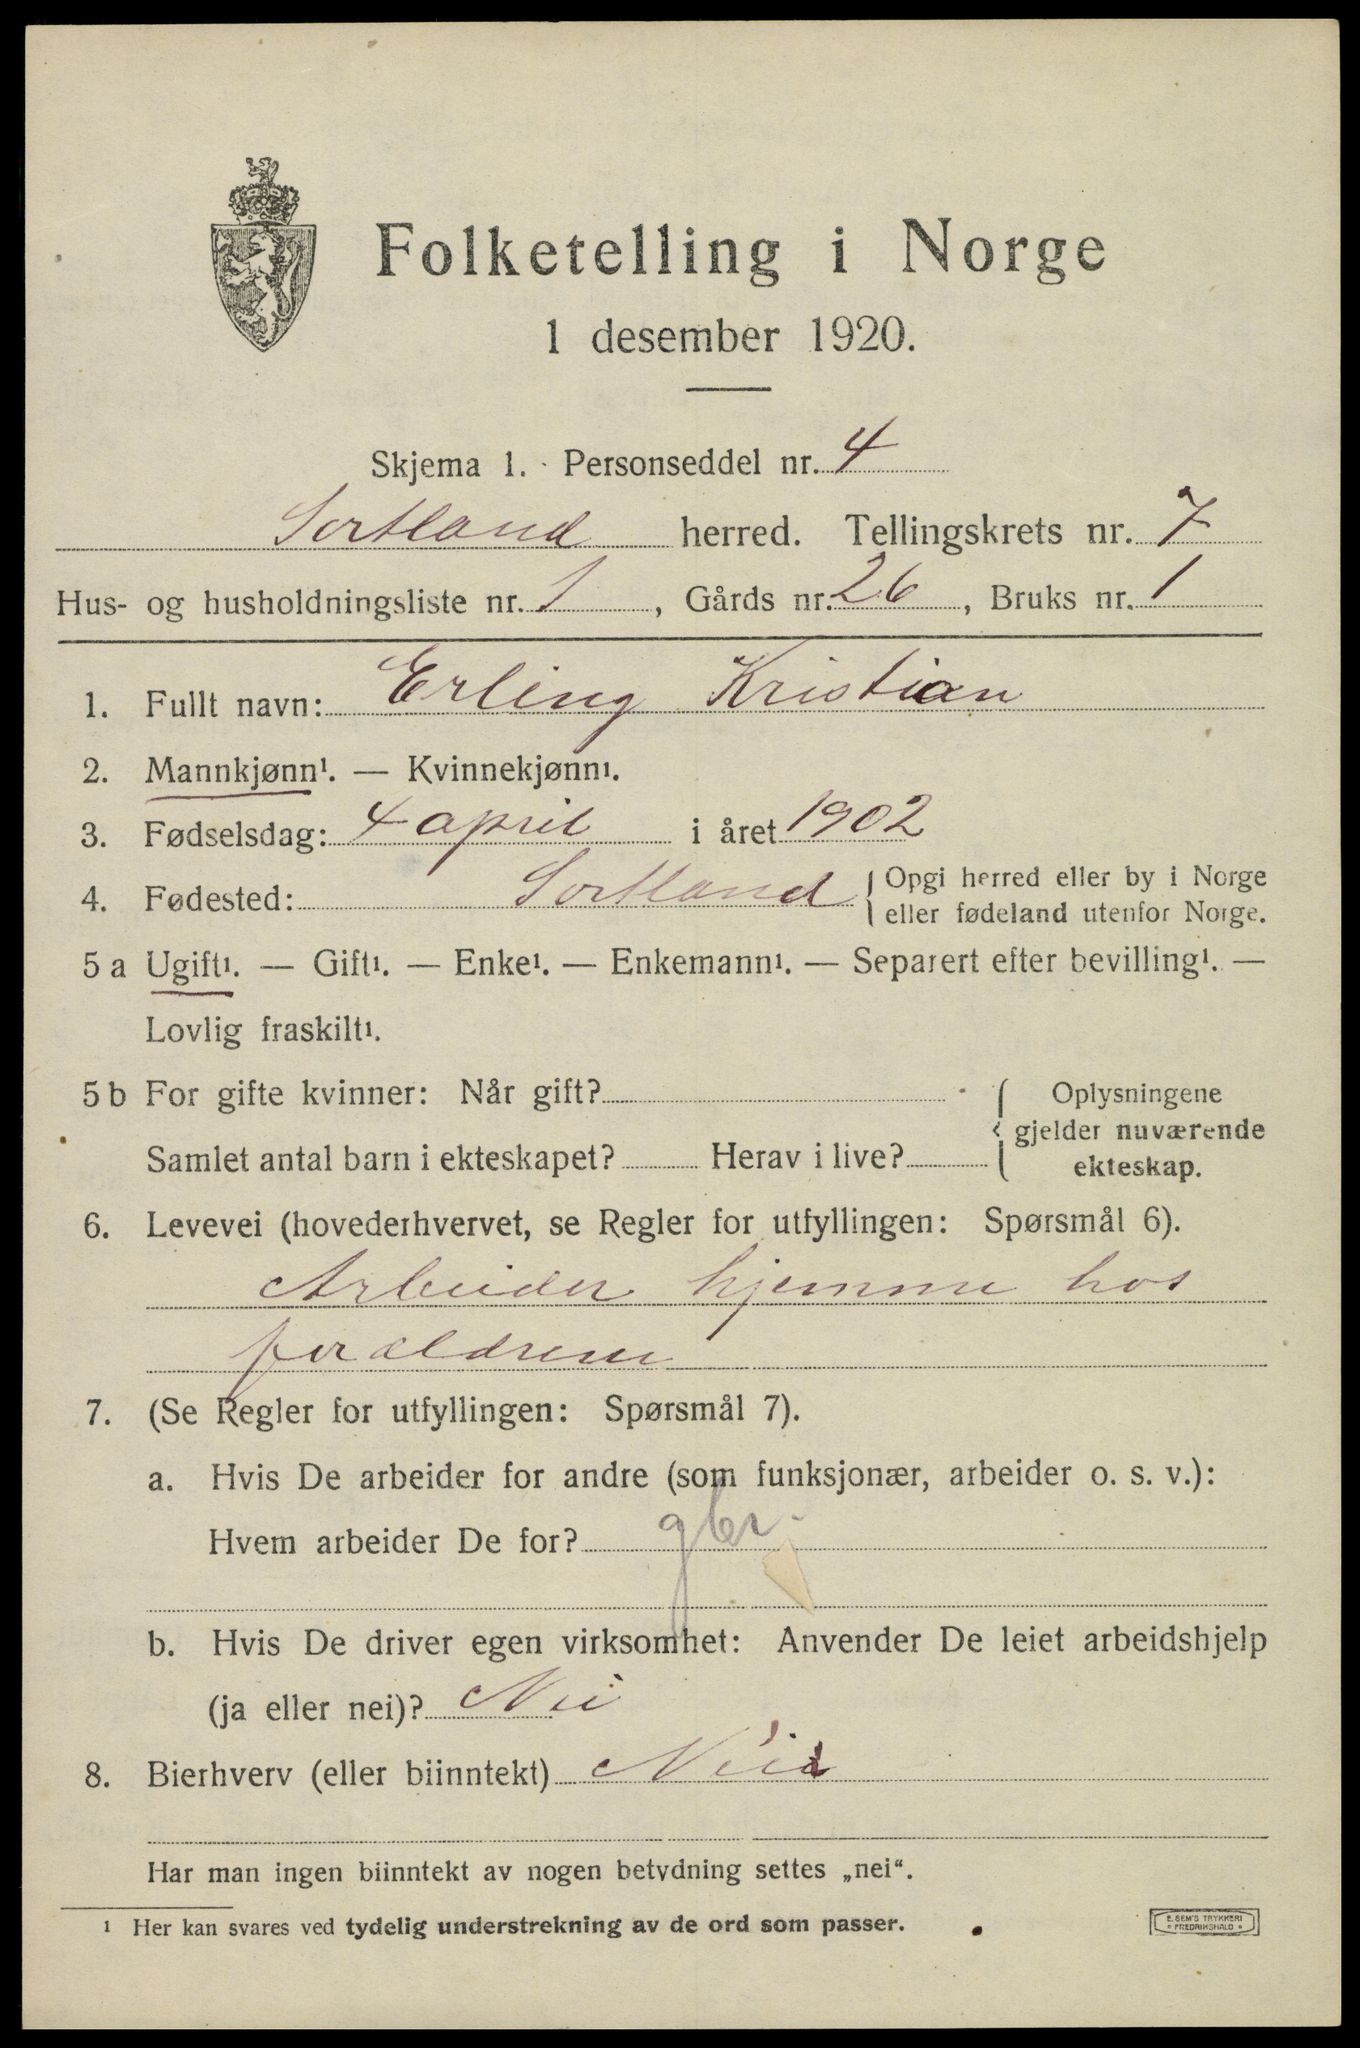 Folketelling i Norge
1 desember 1920.
Skjema 1. Personseddel nr. 4
Sortland herred. Tellingskrets nr. 7
Hus- og husholdningsliste nr. 1, Gårds nr. 26, Bruks nr. 1
1. Fullt navn: Erling Kristian
2. Mannkjønn¹. — Kvinnekjønn¹.
3. Fødselsdag: 4 april i året 1902
4. Fødested: Sortland { Opgi herred eller by i Norge
eller fødeland utenfor Norge.
5 a Ugift¹. — Gift¹. — Enke¹. — Enkemann¹. — Separert efter bevilling¹. —
Lovlig fraskilt¹.
5 b For gifte kvinner: Når gift?
Samlet antal barn i ekteskapet? Herav i live?
{ Oplysningene
gjelder nuværende
ekteskap.
6. Levevei (hovederhvervet, se Regler for utfyllingen: Spørsmål 6).
Arbeider hjemme hos
forældrene
7. (Se Regler for utfyllingen: Spørsmål 7).
a. Hvis De arbeider for andre (som funksjonær, arbeider o. s. v.):
Hvem arbeider De for? gbr.
b. Hvis De driver egen virksomhet: Anvender De leiet arbeidshjelp
(ja eller nei)? Nei
8. Bierhverv (eller biinntekt) Nei
Har man ingen biinntekt av nogen betydning settes „nei“.
¹ Her kan svares ved tydelig understrekning av de ord som passer.
E. SEM'S TRYKKERI
FREDRIKSHALD